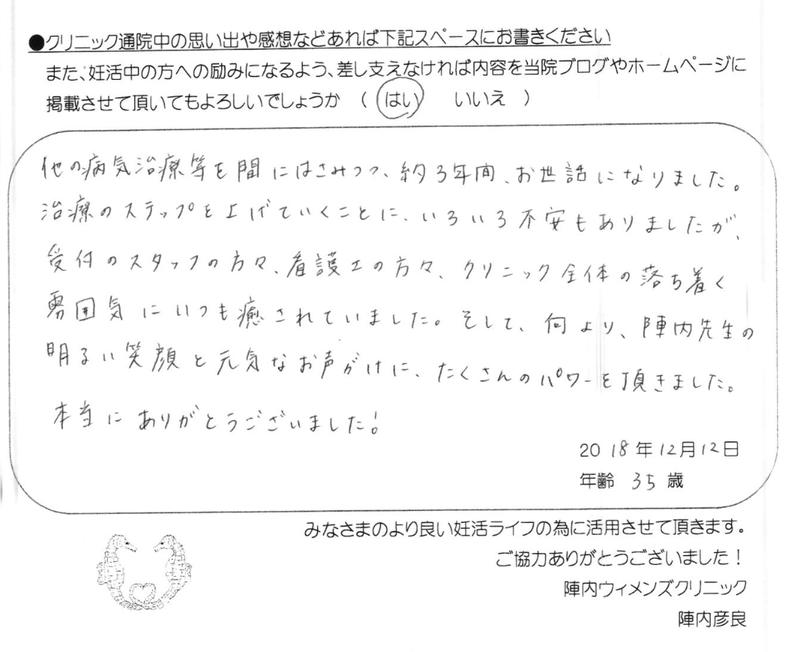 ●クリニック通院中の思い出や感想などあれば下記スペースにお書きください
また、妊活中の方への励みになるよう、差し支えなければ内容を当院ブログやホームページに
掲載させて頂いてもよろしいでしょうか （ はい いいえ ）
他の病気治療等を間にはさみつつ、約3年間、お世話になりました。
治療のステップを上げていくことに、いろいろ不安もありましたが、
受付のスタッフの方々、看護士の方々、クリニック全体の落ち着く
雰囲気にいつも癒されていました。そして、何より、陣内先生の
明るい笑顔と元気なお声がけに、たくさんのパワーを頂きました。
本当にありがとうございました!
2018年12月12日
年齢 35 歳
みなさまのより良い妊活ライフの為に活用させて頂きます。
ご協力ありがとうございました！
陣内ウィメンズクリニック
陣内彦良